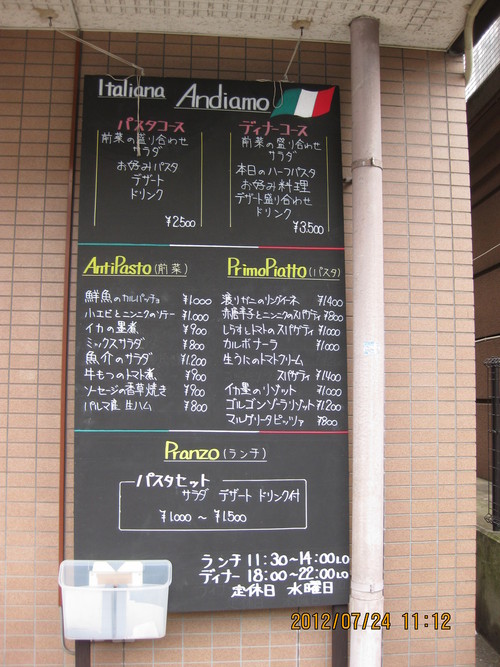 Italiana Andiamo
パスタコース
前菜の盛り合わせ
サラダ
お好みパスタ
デザート
ドリンク
¥2500
ディナーコース
前菜の盛り合わせ
サラダ
本日のハーフパスタ
お好み料理
デザート盛り合わせ
ドリンク
¥3.500
AntiPasto(前菜)
鮮魚のカルパッチョ ¥1.000
小エビとニンニクのソテー ¥1.000
イカの墨煮 ¥900
ミックスサラダ ¥800
魚介のサラダ ¥1.200
牛もつのトマト煮 ¥900
ソーセージの香草焼き ¥900
パルマ産 生ハム ¥800
PrimoPiatto(パスタ)
渡りガニのリングイーネ ¥1400
赤唐辛子とニンニクのスパゲティ ¥800
しらすとトマトのスパゲティ ¥1000
カルボナーラ ¥1000
生うにのトマトクリーム
スパゲティ ¥1400
イカ墨のリゾット ¥1000
ゴルゴンゾーラリゾット ¥1200
マルゲリータピッツァ ¥800
Pranzo(ランチ)
パスタセット
サラダ デザート ドリンク付
¥1.000 ～ ¥1.500
ランチ 11:30～14:00L.O
ディナー 18:00～22:00L.O
定休日 水曜日
2012/07/24 11:12